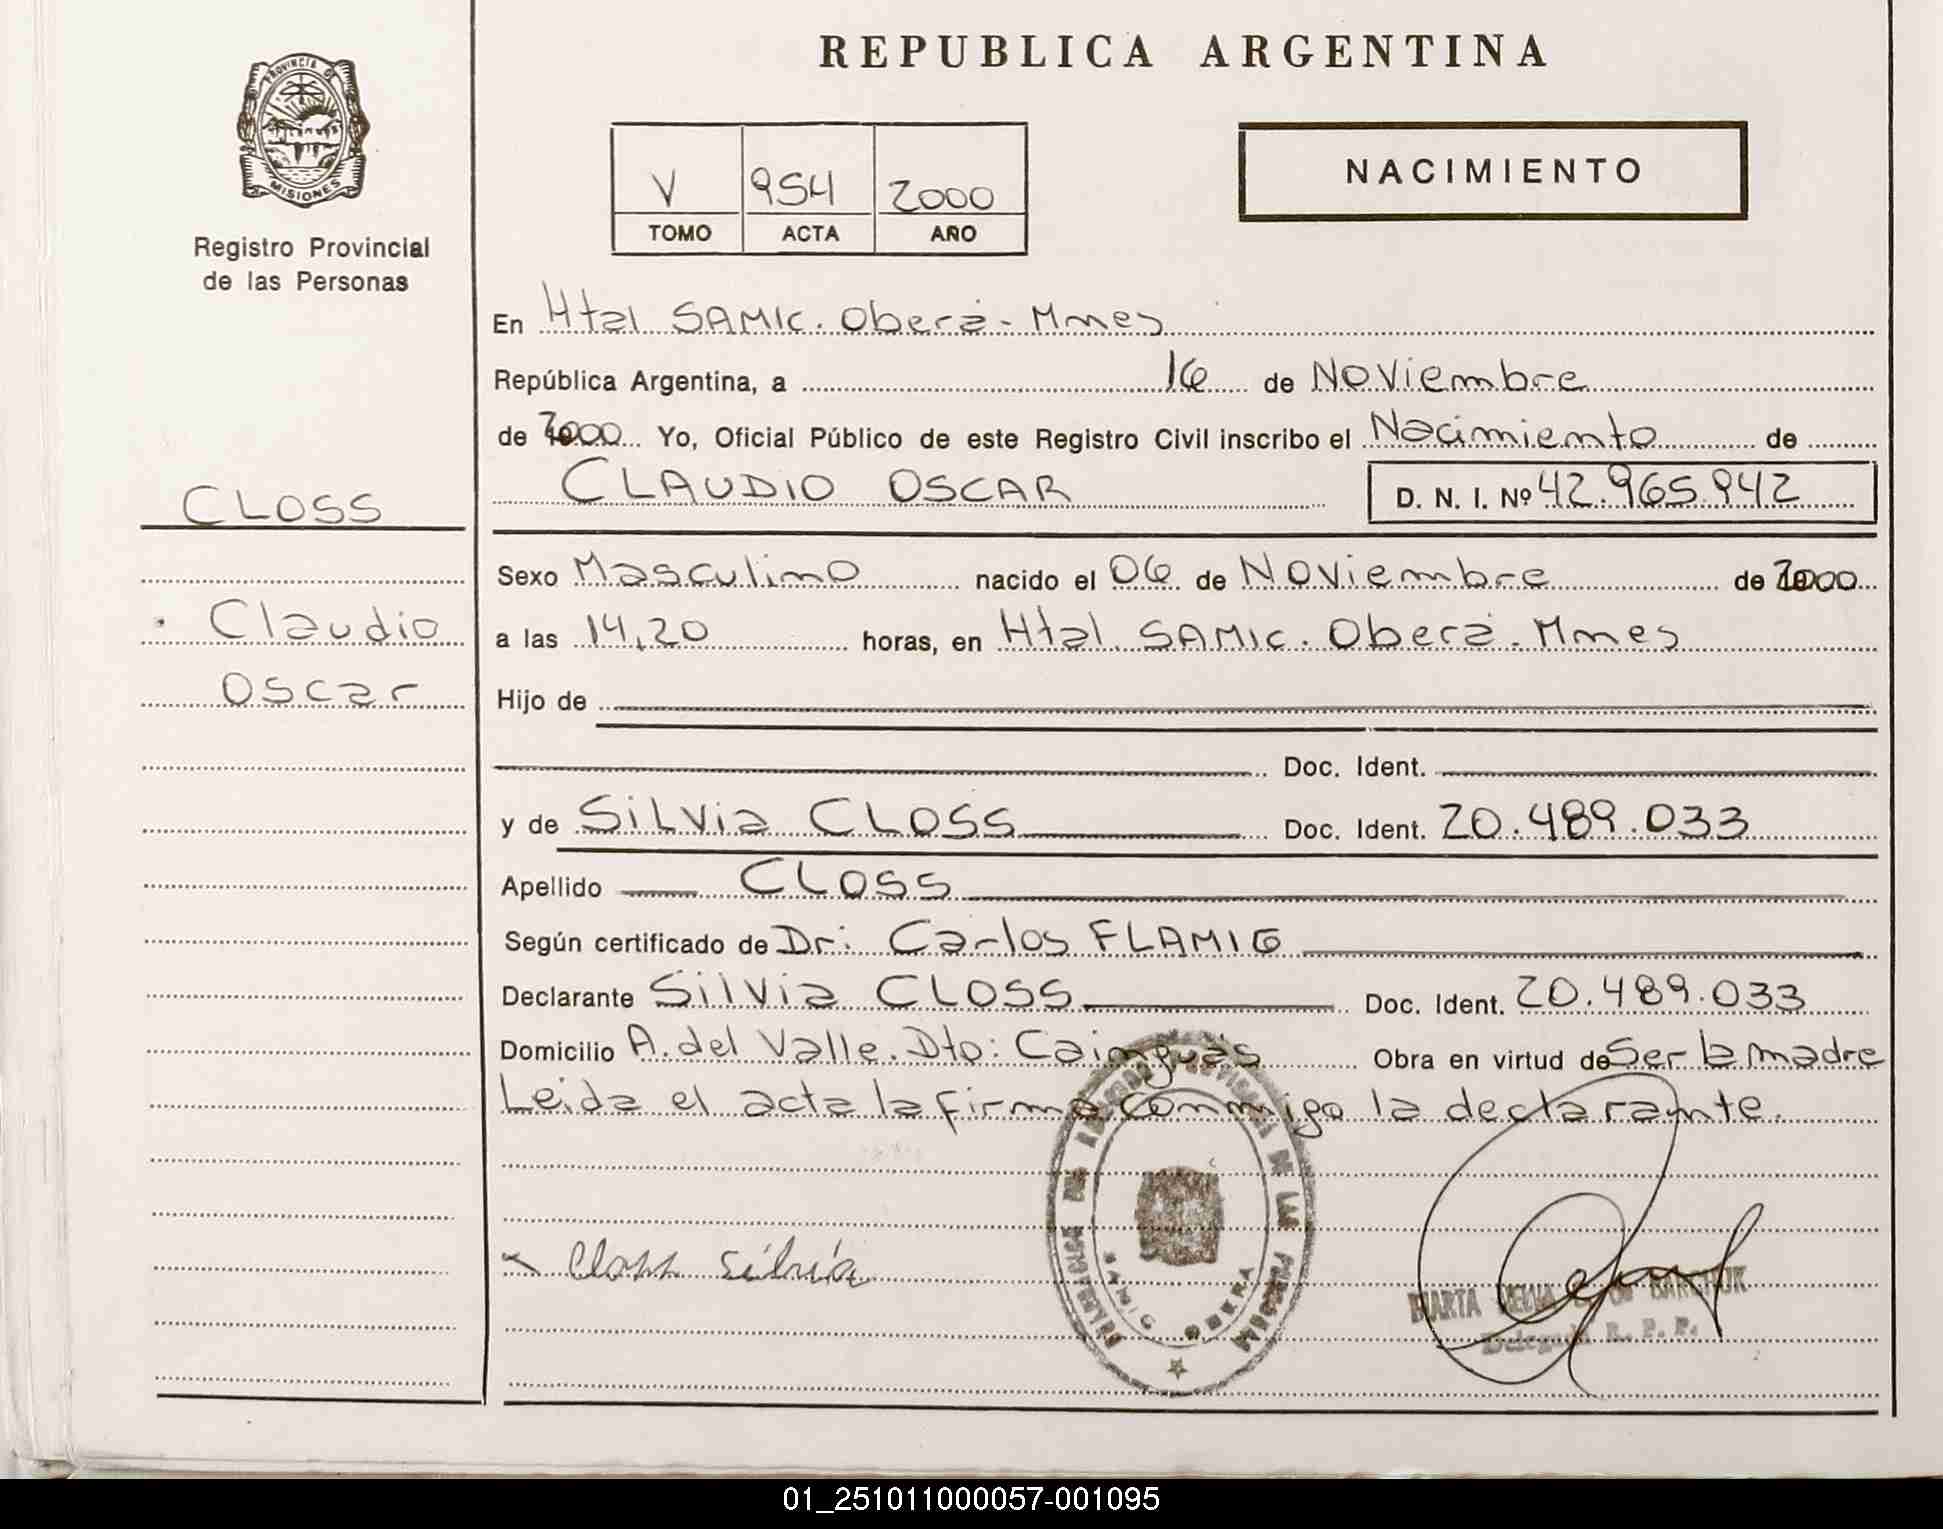 REPUBLICA ARGENTINA
PROVINCIA DE
MISIONES
Registro Provincial
de las Personas
V 954 2000
TOMO ACTA AÑO
NACIMIENTO
En Htal SAMIC. Oberá - Mnes
República Argentina, a 16 de Noviembre
de 2000 Yo, Oficial Público de este Registro Civil inscribo el Nacimiento de
CLAUDIO OSCAR D. N. I. Nº 42.965.942
CLOSS
Claudio
Oscar
Sexo Masculino nacido el 06 de Noviembre de 2000
a las 14,20 horas, en Htal SAMIC. Oberá. Mnes
Hijo de
Doc. Ident.
y de Silvia CLOSS Doc. Ident. 20.489.033
Apellido CLOSS
Según certificado de Dr: Carlos FLAMIG
Declarante Silvia CLOSS Doc. Ident. 20.489.033
Domicilio A. del Valle. Dto: Cainguás Obra en virtud de Ser la madre
Leida el acta la firma conmigo la declarante.
Closs Silvia
OBERA
MARTA BARCHUK
Delegada R. P. P.
01_251011000057-001095